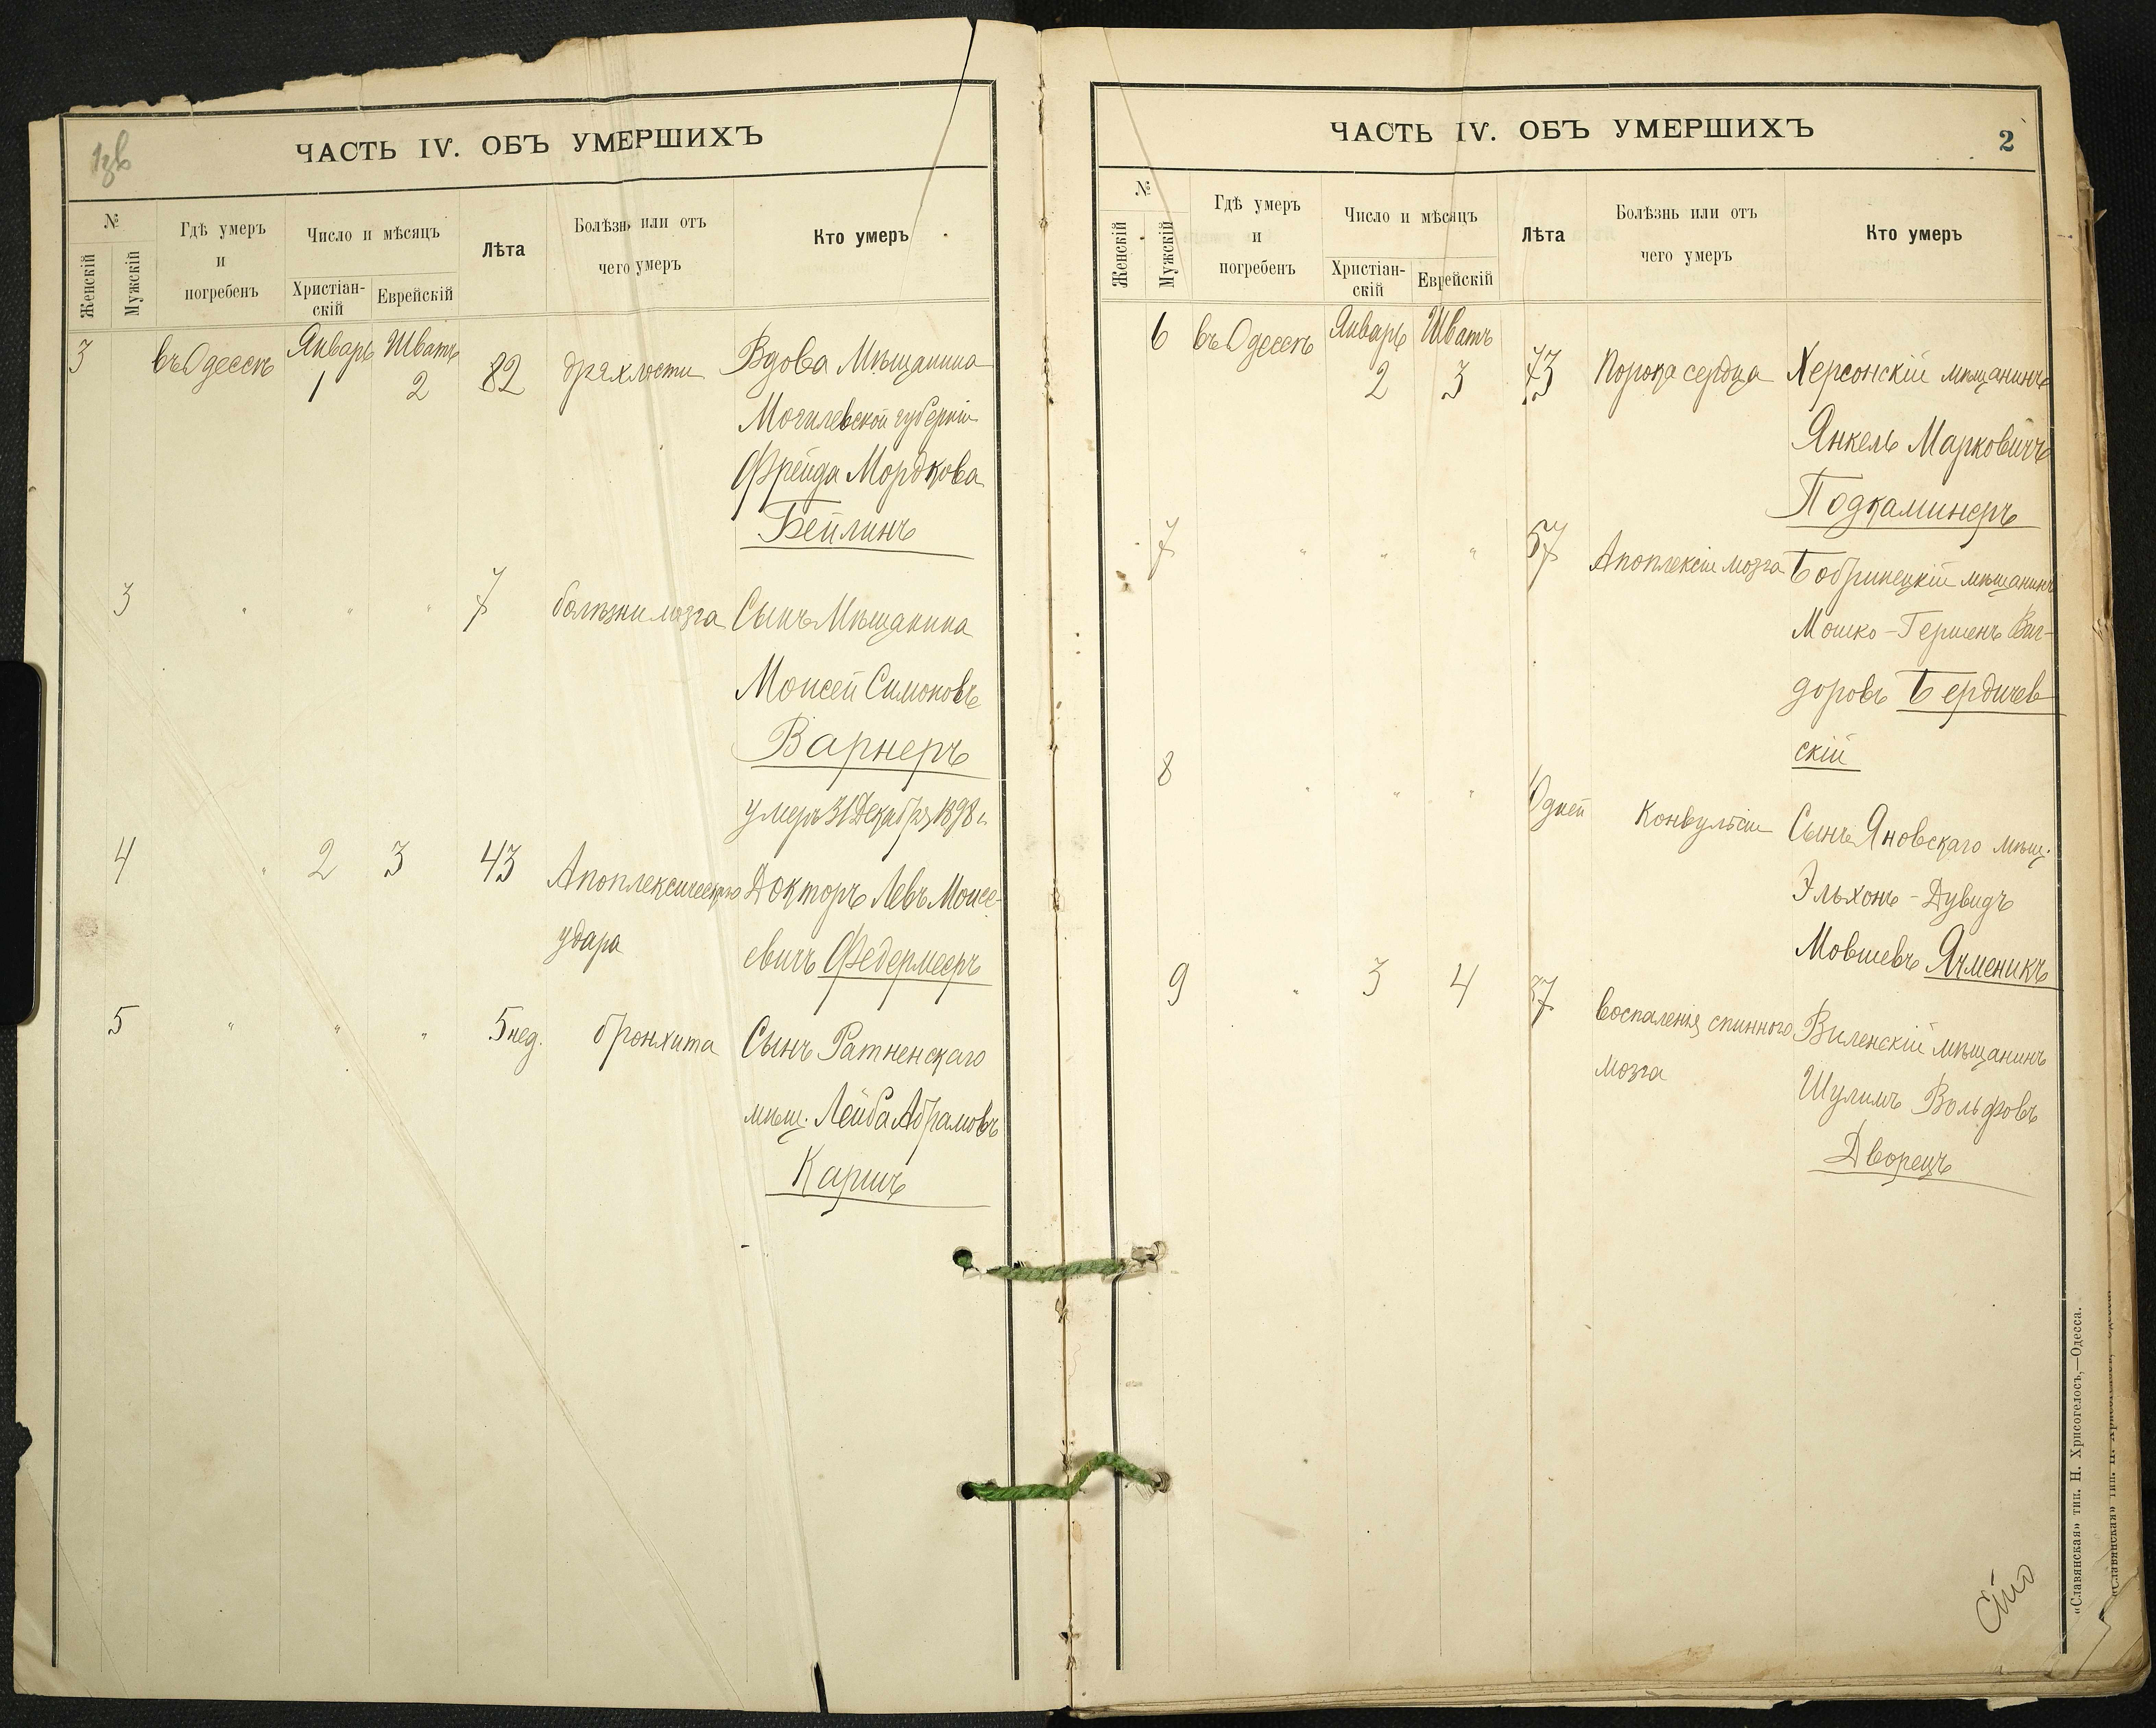 ЧАСТЬ IV. ОБЪ УМЕРШИХЪ
№
Женскій
Мужскій
Гдѣ умеръ
и
погребенъ
Число и мѣсяцъ
Христіан-
скій
Еврейскій
Лѣта
Болѣзнь или отъ
чего умеръ
Кто умеръ
3 въ Одессѣ Январь 1 Шватъ 2 82 дряхлости Вдова Мѣщанина
Могилевской губерніи
Фрейда Мордкова
Бейлинъ
3 " " " 7 болѣзни мозга Сынъ Мѣщанина
Моисей Симоновъ
Варнеръ
умеръ 31 Декабря 1898 г.
4 " 2 3 43 Апоплексическаго Докторъ Левъ Моисе-
удара евичъ Федермееръ
5 " " " 5 нед. бронхита Сынъ Ратненскаго
мѣщ. Лейба Абрамовъ
Каршъ
ЧАСТЬ IV. ОБЪ УМЕРШИХЪ
2
№
Женскій
Мужскій
Гдѣ умеръ
и
погребенъ
Число и мѣсяцъ
Христіан-
скій
Еврейскій
Лѣта
Болѣзнь или отъ
чего умеръ
Кто умеръ
6 въ Одессѣ Январь 2 Шватъ 3 73 Порока сердца Херсонскій мѣщанинъ
Янкель Марковичъ
Подкаминеръ
7 " " " 57 Апоплексіи мозга Бобринецкій мѣщанинъ
Мошко-Гершенъ Виг-
доровъ Бердичев
скій
8 " " " 10 дней Конвульсіи Сынъ Яновскаго мѣщ.
Эльхонъ-Дувидъ
Мовшевъ Ячменикъ
9 " 3 4 37 воспаленія спинного Виленскій мѣщанинъ
мозга Шулимъ Вольфовъ
Дворецъ
«Славянская» тип. Н. Хрисогелосъ,—Одесса.